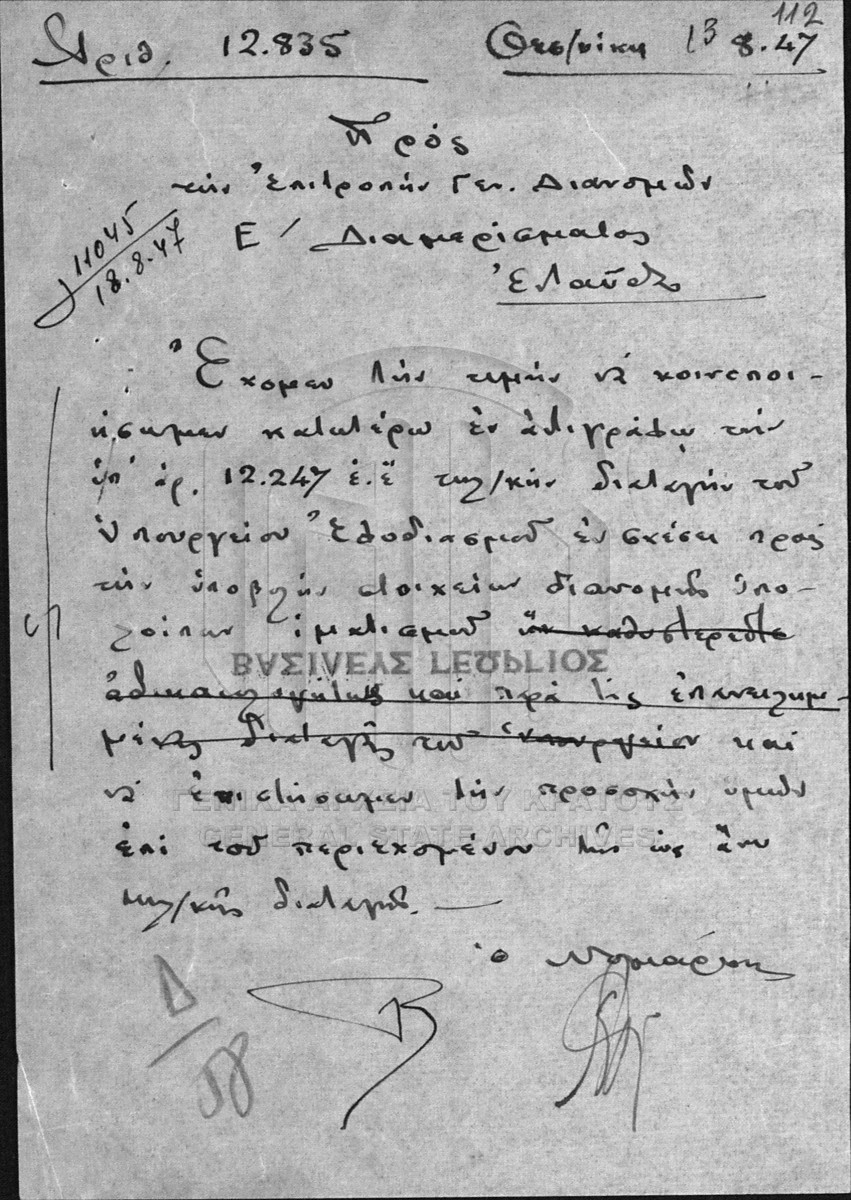 112
Ἀριθ. 12.835 Θεσ/νίκη 13 8.47
Πρός
τὴν Ἐπιτροπὴν Γεν. Διανομῶν
Ε΄ Διαμερίσματος
Ἐνταῦθα
11045
18.8.47
Ἔχομεν τὴν τιμὴν νὰ κοινοποι-
ήσωμεν κατωτέρω ἐν ἀντιγράφῳ τὴν
ὑπ' ἀρ. 12.247 ἐ.ἔ τηλ/κὴν διαταγὴν τοῦ
Ὑπουργείου Ἐφοδιασμοῦ ἐν σχέσει πρὸς
τὴν ὑποβολὴν στοιχείων διανομῆς ὑπο-
λοίπων ἱματισμοῦ καθυστερεῖτε
ἀδικαιολογήτως καὶ παρὰ τὰς ἐπανειλημ-
μένας διαταγὰς τοῦ Ὑπουργείου καὶ
νὰ ἐπιστήσωμεν τὴν προσοχὴν ὑμῶν
ἐπὶ τοῦ περιεχομένου τῆς ὡς ἄνω
τηλ/κῆς διαταγῆς.
ὁ Νομάρχης
Δ
58
ΒΑΣΙΛΕΥΣ ΓΕΩΡΓΙΟΣ
ΓΕΝΙΚΑ ΑΡΧΕΙΑ ΤΟΥ ΚΡΑΤΟΥΣ
GENERAL STATE ARCHIVES